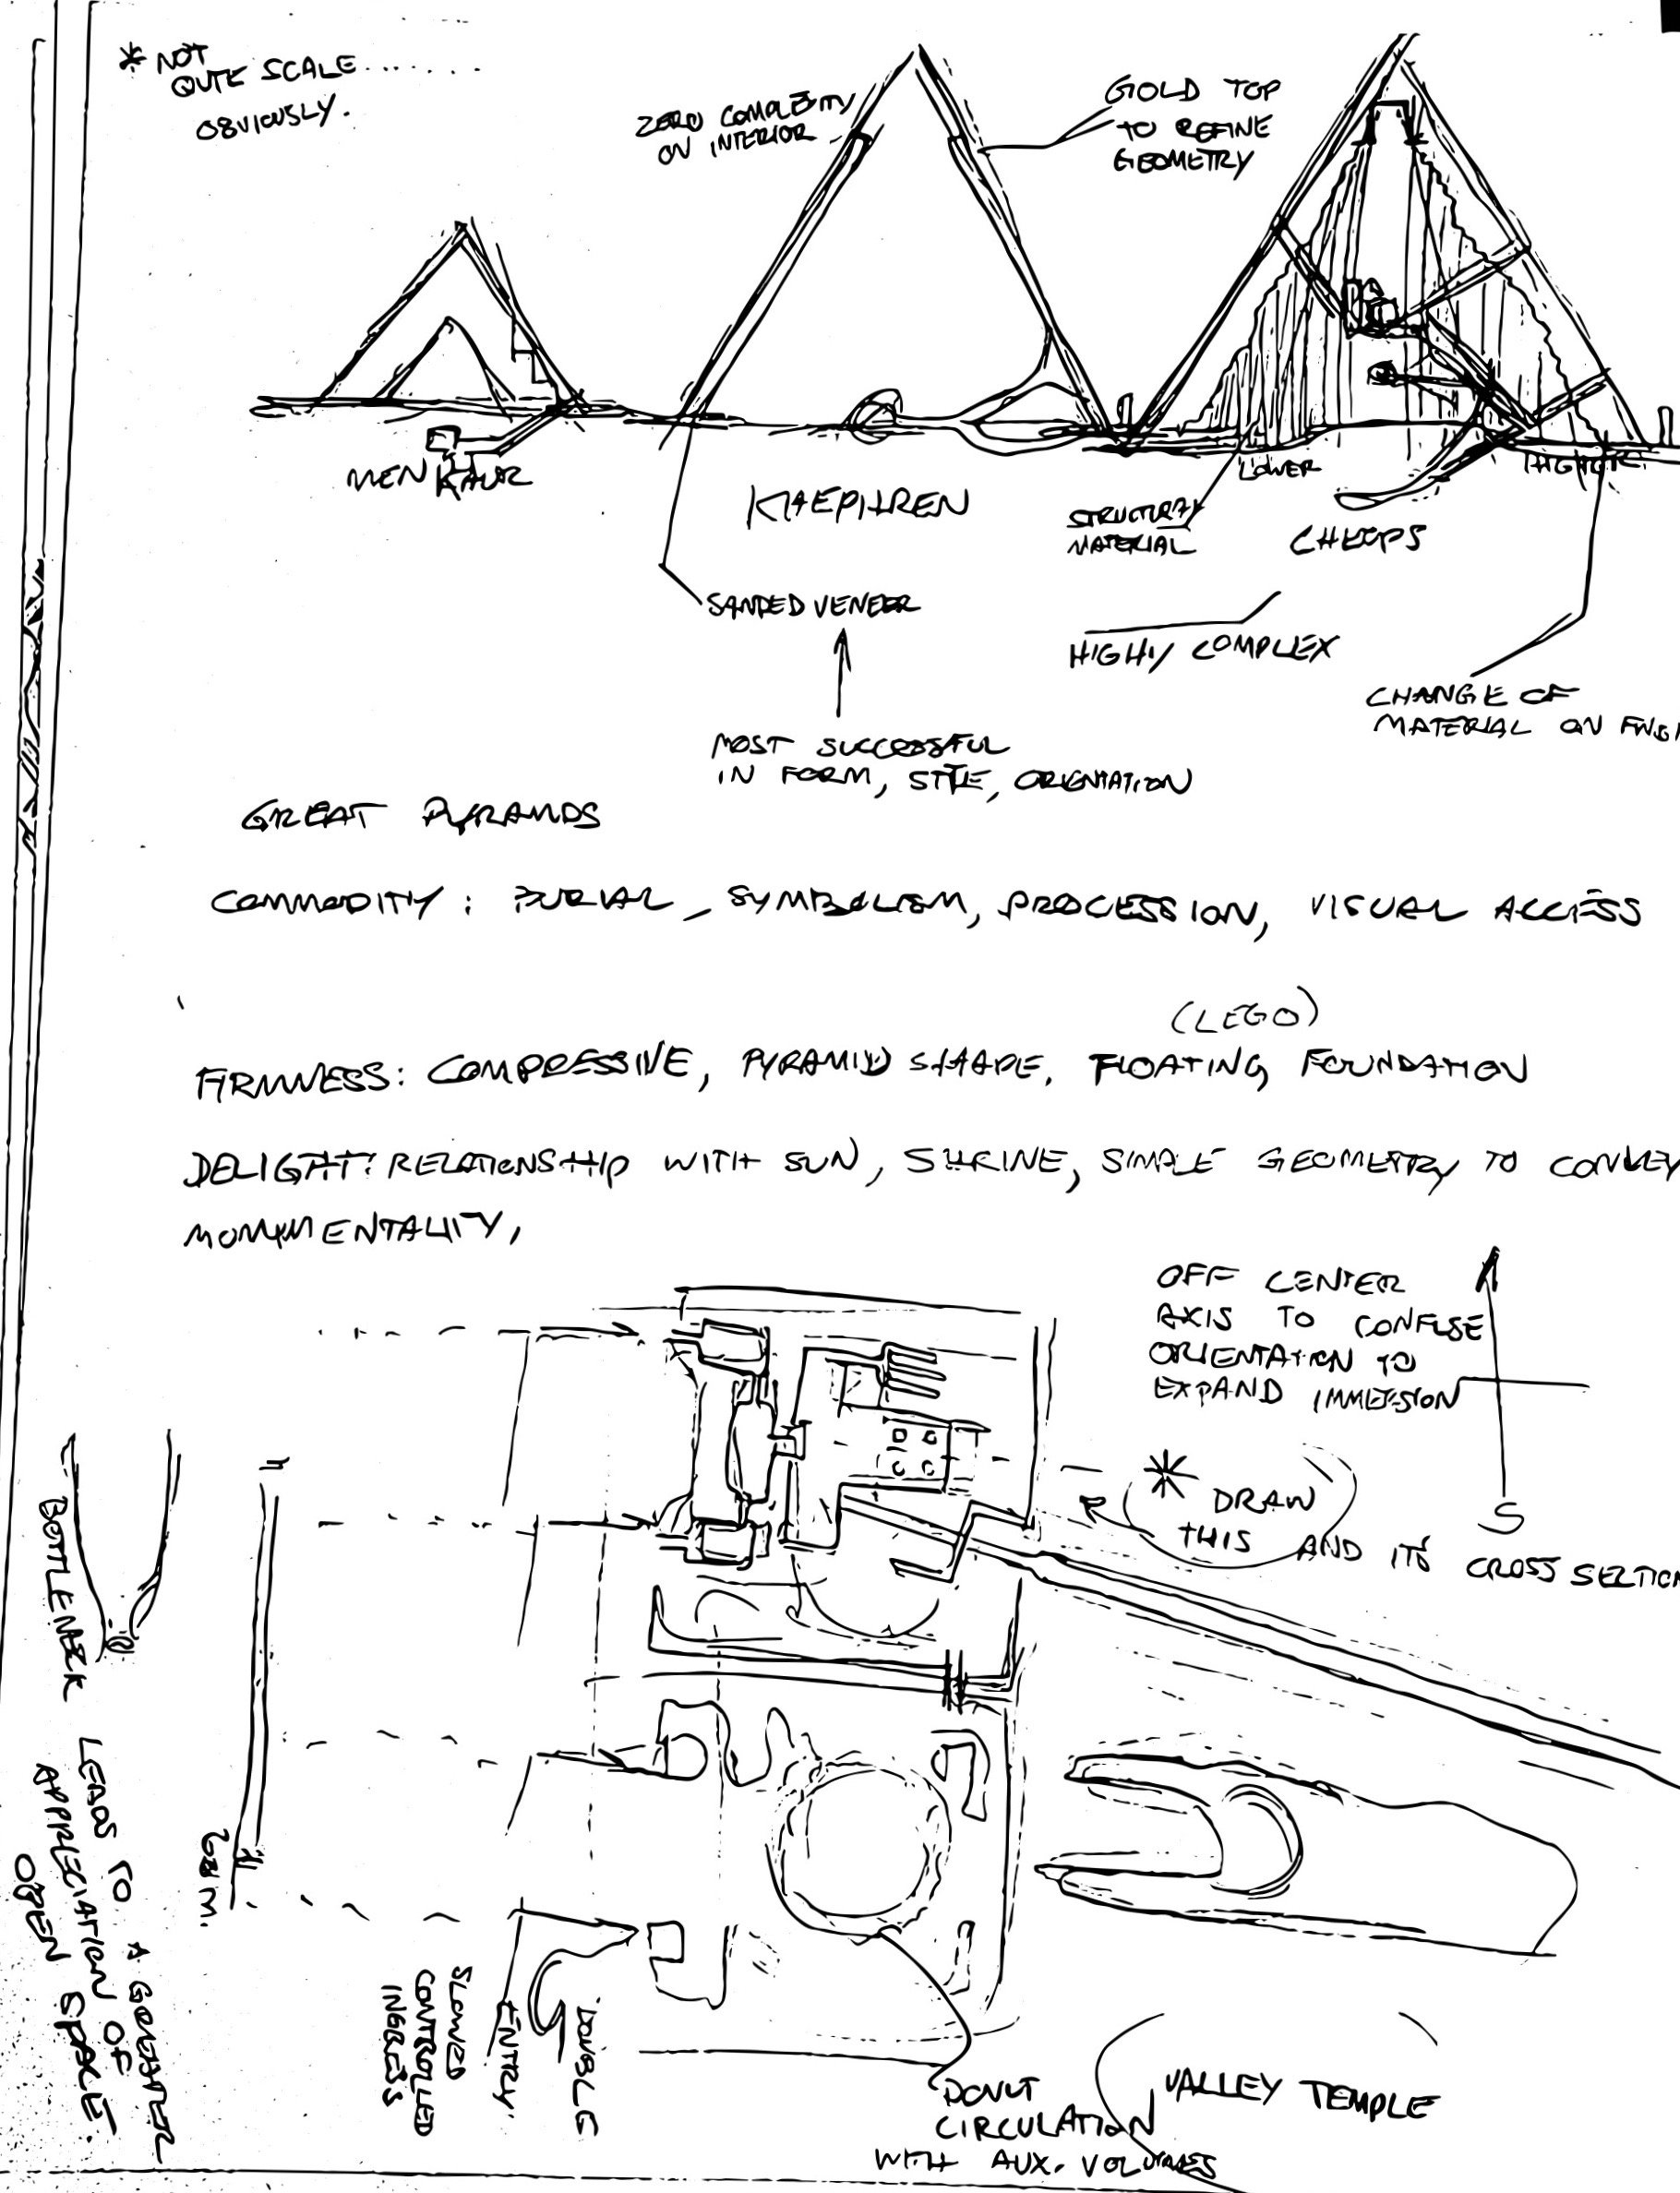 * NOT
QUTE SCALE........
OBVIOUSLY.
ZERO COMPLEXITY
ON INTERIOR
GOLD TOP
TO REFINE
GEOMETRY
MENKAUR
KHEPHREN
LOWER
HIGHER
STRUCTURAL
MATERIAL
CHEOPS
SANDED VENEER
HIGHLY COMPLEX
CHANGE OF
MATERIAL ON
MOST SUCCESSFUL
IN FORM, SITE, ORIENTATION
GREAT PYRAMIDS
COMMODITY: BURIAL, SYMBOLISM, PROCESSION, VISUAL ACCESS
(LEGO)
FIRMNESS: COMPRESSIVE, PYRAMID SHAPE, FLOATING FOUNDATION
DELIGHT: RELATIONSHIP WITH SUN, SHRINE, SIMPLE GEOMETRY TO CONVEY
MONUMENTALITY,
OFF CENTER
AXIS TO CONFUSE
ORIENTATION TO
EXPAND IMMERSION
S
* DRAW
THIS AND ITS CROSS SECTION
BOTTLENECK LEADS TO A GREATER
APPRECIATION OF
OPEN SPACE.
SLOWED
CONTROLLED
INGRESS
DOUBLE
ENTRY.
DONUT
CIRCULATION
WITH AUX. VOLUMES
VALLEY TEMPLE